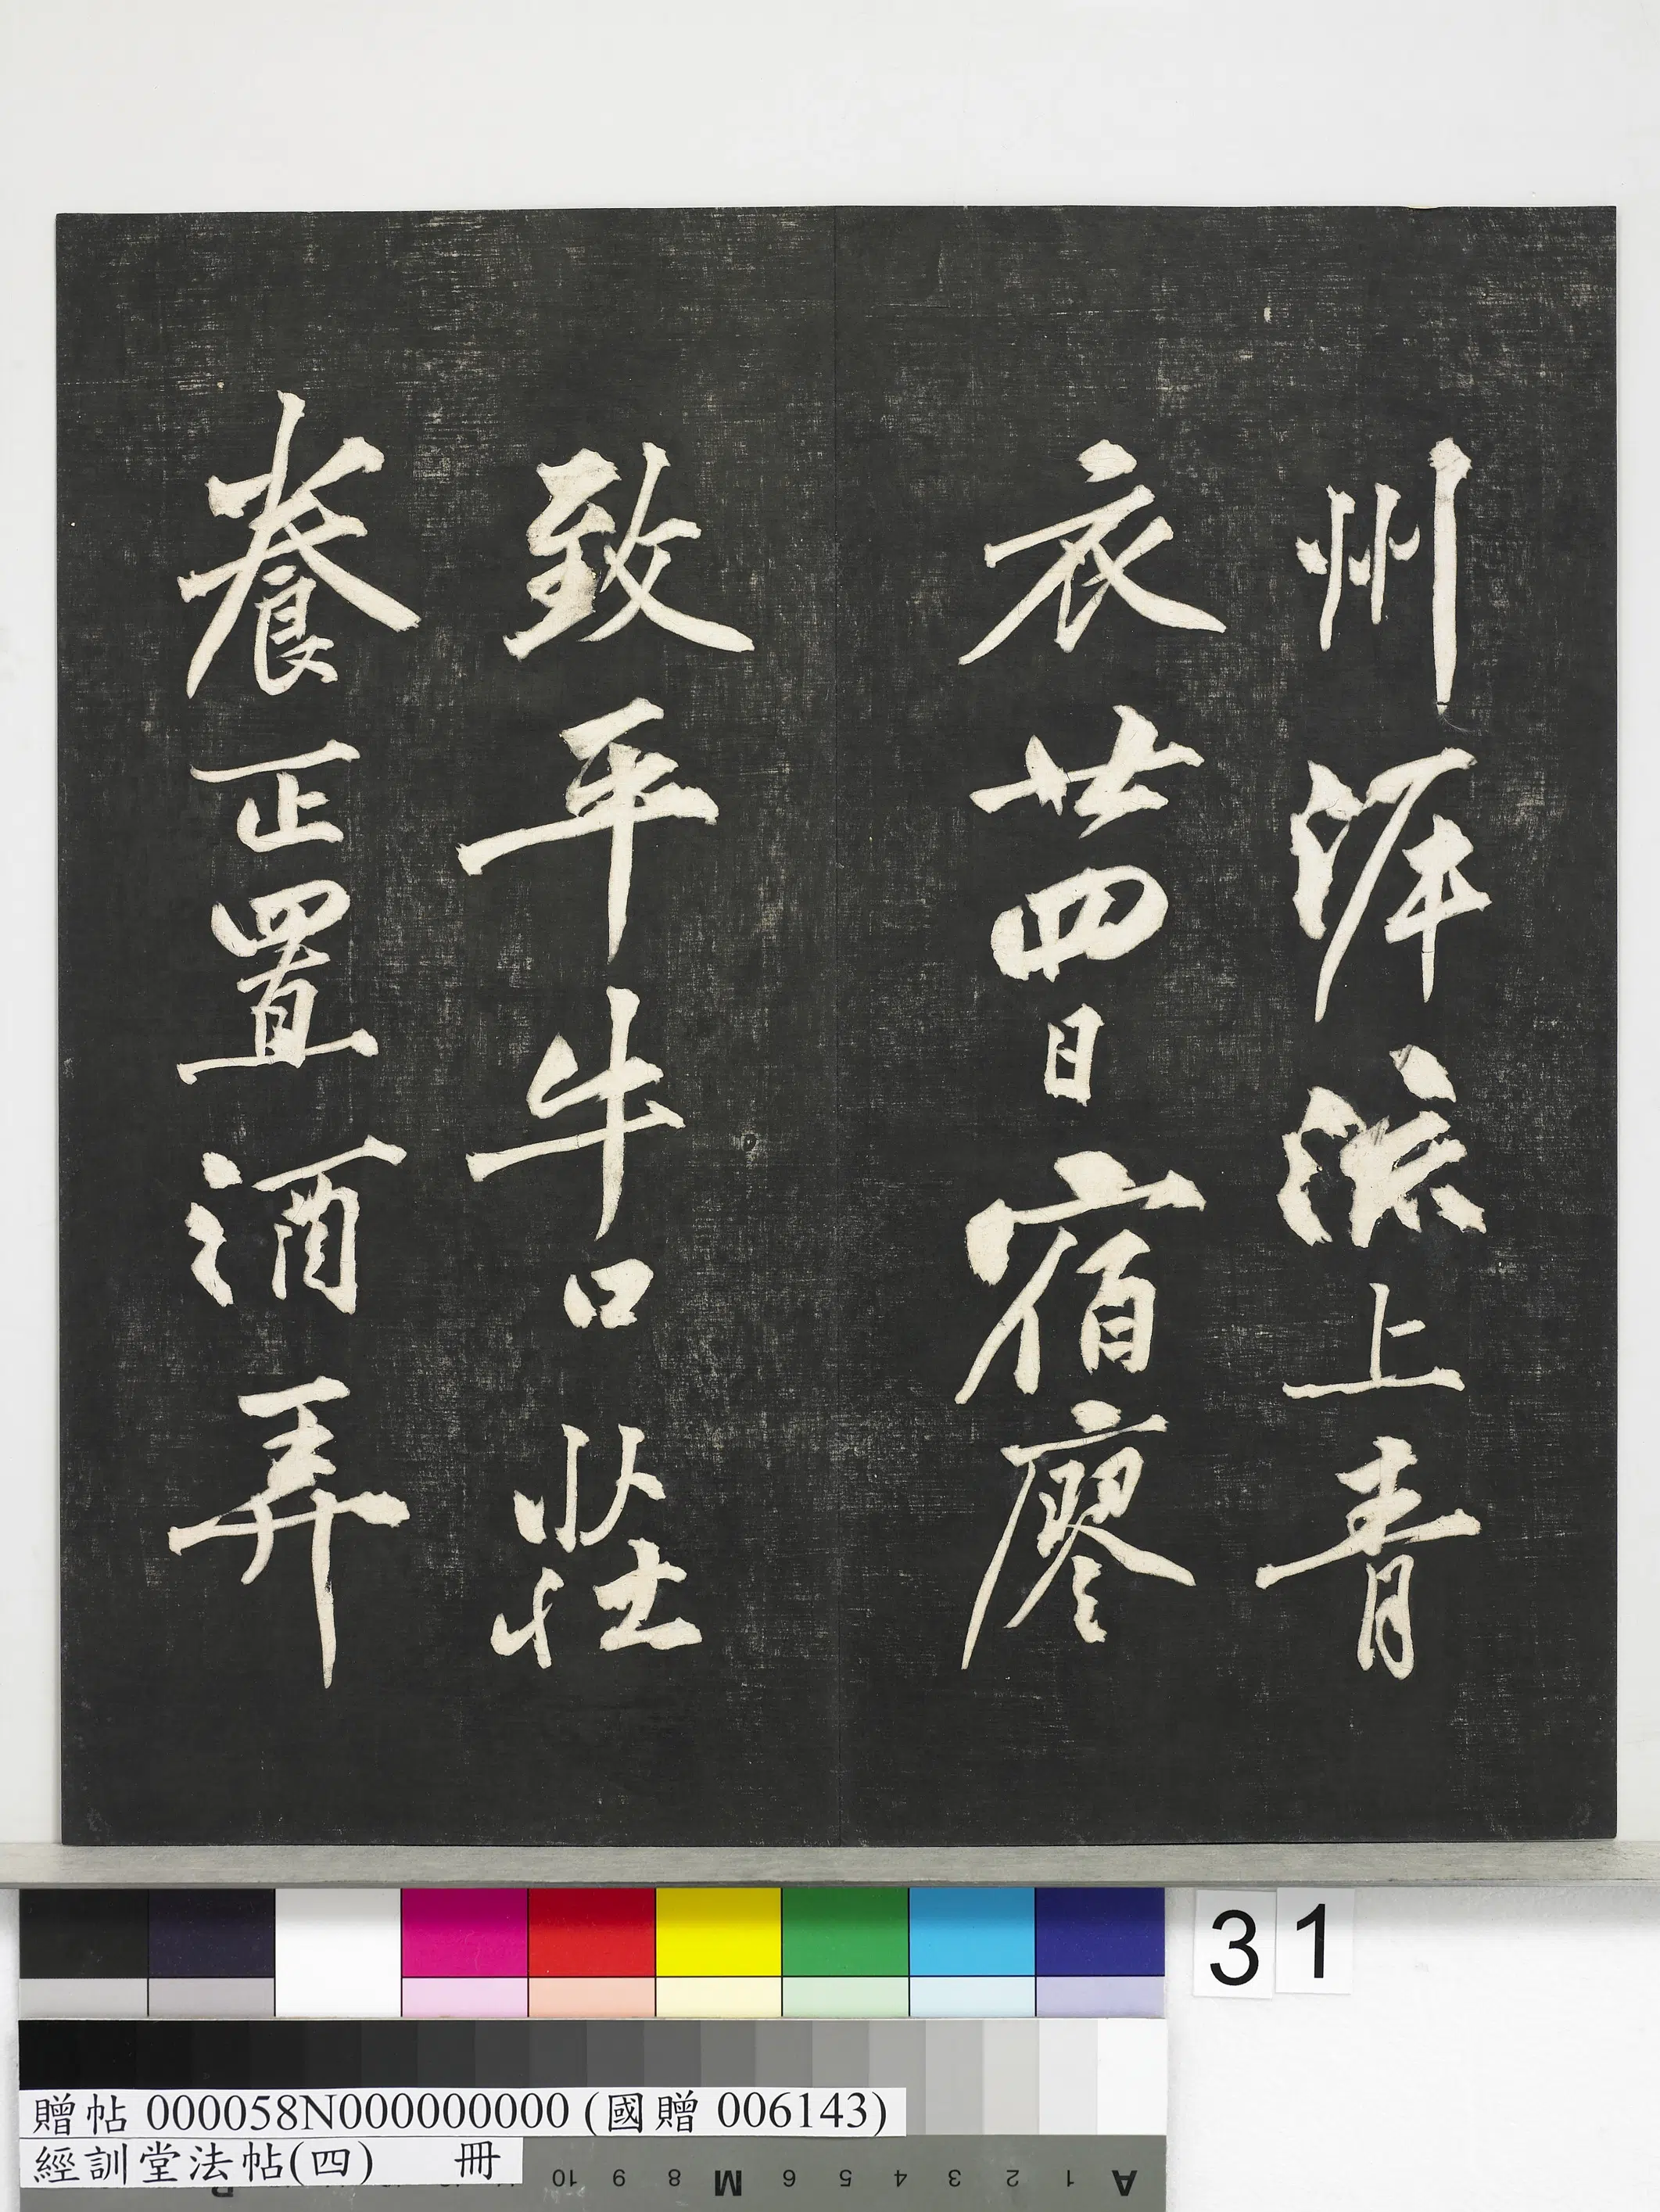 州泝流上青
衣廿四日宿廖
致平牛口莊
養正置酒弄
31
贈帖 000058N000000000 (國贈 006143)
經訓堂法帖(四) 冊
A 1 2 3 4 5 6 M 8 9 10